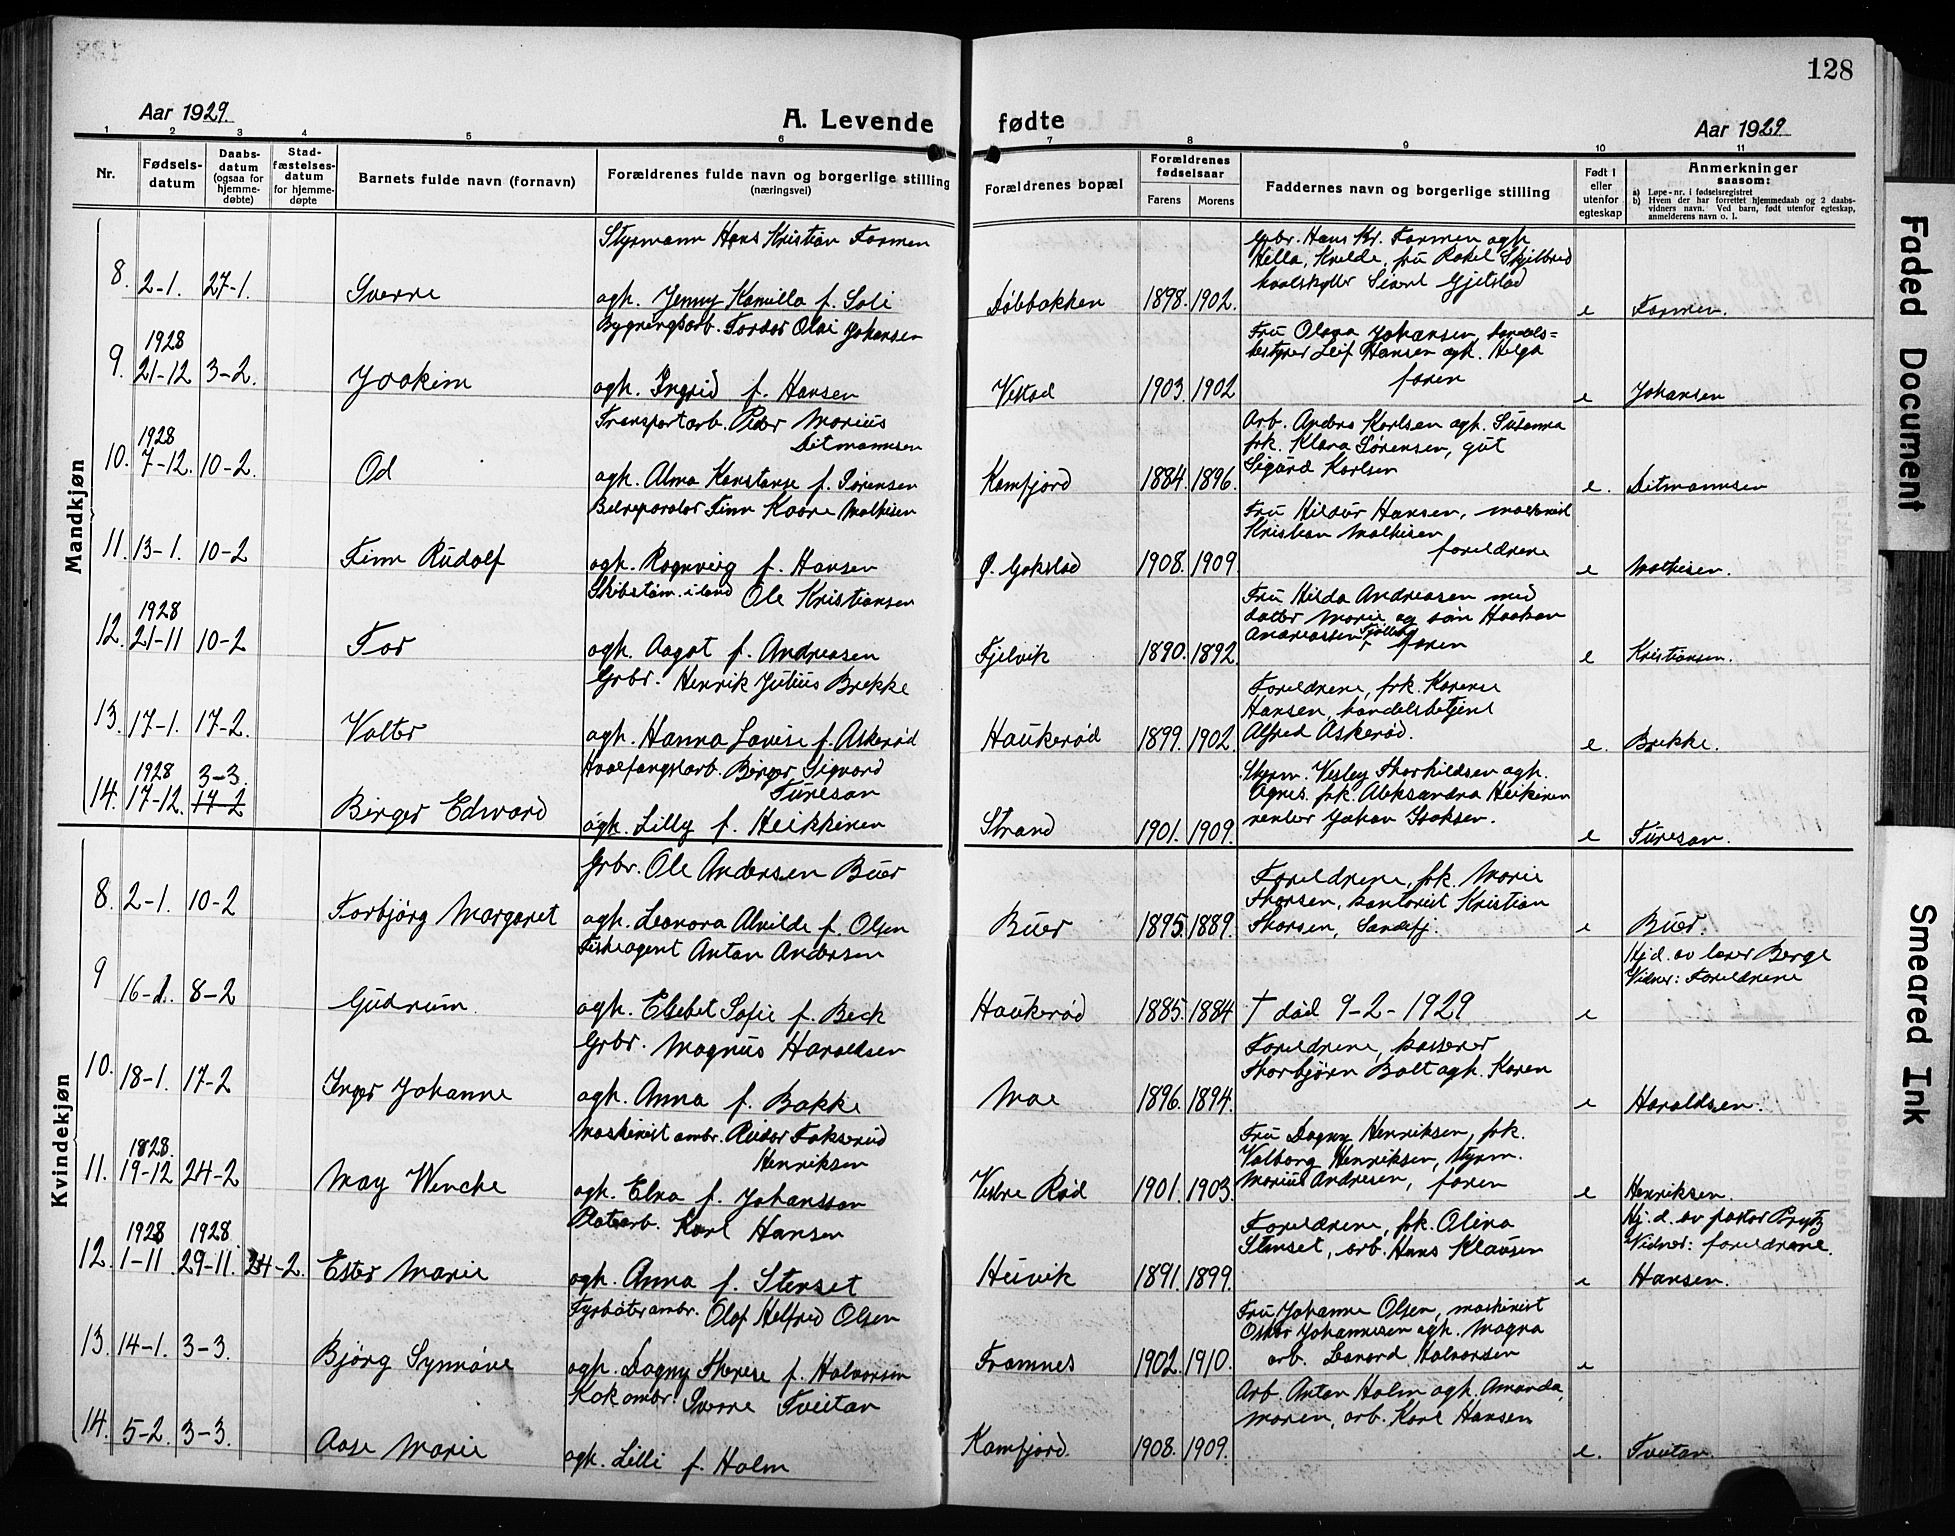 128
Aar 1929.
A. Levende fødte
Aar 1929
1 2 3 4 5 6 7 8 9 10 11
Nr.
Fødsels-
datum
Daabs-
datum
(ogsaa for
hjemme-
døbte)
Stad-
fæstelses-
datum
for hjemme-
døpte
Barnets fulde navn (fornavn)
Forældrenes fulde navn og borgerlige stilling
(næringsvei)
Forældrenes bopæl
Forældrenes
fødselsaar
Farens
Morens
Faddernes navn og borgerlige stilling
Født i
eller
utenfor
egteskap
Anmerkninger
saasom:
a) Løpe-nr. i fødselsregistret
b) Hvem der har forrettet hjemmedaab og 2 daabs-
vidners navn. Ved barn, født utenfor egteskap,
anmelderens navn o. l.
Mandkjøn
8. 2-1. 27-1. Sverre
Styrmann Hans Kristian Formen
agh. Jenny Kamilla f. Soli
Døbbakken 1898. 1902.
Grbr. Hans Kr. Formen agh
Hella, Kvelde, fru Rakel Skjelbred
hvalskytter Sivert Gjelstad
e Formen.
9. 1928
21-12 3-2. Joakim
Bygningsarb. Tordor Olai Johansen
agh. Ingrid f. Hansen
Vestad 1903. 1902
Fru Olava Johansen, handels-
bestyrer Leif Hansen agh. Helga
faren
e Johansen
10. 1928
7-12. 10-2. Od
Transportarb. Peder Marius
Ditmannsen
agh. Alma Konstanse f. Sørensen
Kamfjord 1884. 1896.
Arb. Anders Karlsen agh. Susanna
frk. Klara Sørensen, gut
Sigurd Karlsen
e. Ditmannsen
11. 13-1. 10-2 Finn Rudolf
Bilreparatør Finn Kaare Mathisen
agh. Ragnveig f. Hansen
Ø. Gokstad 1908. 1909
Fru Hildur Hansen, maskinist
Kristian Mathisen
foreldrene
e Mathisen.
12. 1928
21-11 10-2 Tor
Skibstøm. i land Ole Kristiansen
agh. Aagot f. Andreasen
Fjelvik 1890. 1892
Fru Hilda Andreasen med
datter Marie og søn Haakon
Andreassen, Fjellvik faren
e Kristiansen.
13. 17-1. 17-2. Valter
Grbr. Henrik Julius Brekke
agh. Hanna Lovise f. Askerød
Haukerød 1899. 1902.
Foreldrene, frk. Karene
Hansen, handelsbetjent
Alfred Askerød.
e. Brekke.
14. 1928 3-3.
17-12. 17-2 Birger Edward
Hvalfangstarb. Birger Sigvard
Tureson
agh. Lilly f. Heikkinen
Strand 1901. 1909.
Styrm. Vesley Thorkildsen agh.
Agnes. frk. Aleksandra Heikinen
rentier Johan Isaksen.
e Tureson.
Kvindekjøn
8. 2-1. 10-2 Torbjørg Margaret
Grbr. Ole Andersen Buer
agh. Leonora Alvilde f. Olsen
Buer 1895. 1889.
Foreldrene, frk. Marie
Thorsen, kontorist Kristian
Thorsen, Sandefj.
e Buer.
9 16-1. 8-2 Gudrun.
Fiskeagent Anton Andersen
agh. Elsebet Sofie f. Beck
Haukerød 1885. 1884
† død 9-2-1929
e
Hj.d. av lærer Berge
Vidner: Foreldrene
10. 18-1. 17-2 Inger Johanne
Grbr. Magnus Haraldsen
agh. Anna f. Bakke
Moe 1896. 1894.
Foreldrene, kasserer
Thorbjørn Bolt agh. Karen
e Haraldsen.
11. 1828.
19-12 24-2 May Wenche
Maskinist ambr. Reidar Fokserød
Henriksen
agh. Elna f. Johansson
Vestre Rød 1901. 1903.
Fru Dagny Henriksen, frk.
Valborg Henriksen, styrm.
Marius Andresen, faren
e Henriksen.
12. 1928 1928
1-11. 29-11. 24-2. Ester Marie
Platearb. Karl Hansen
agh. Anna f. Stenset
Heivik 1891. 1899.
Foreldrene, frk. Alina
Stenset, arb. Hans Klausen
e
Hj.d. av pastor Brytz
Vidner: foreldrene.
Hansen.
13. 14-1. 3-3. Bjørg Synnøve
Fyrbøter ambr. Olaf Helfred Olsen
agh. Dagny Therese f. Halvorsen
Framnes 1902. 1910.
Fru Johanne Olsen, maskinist
Oskar Johannesen agh. Magna
arb. Leonard Halvorsen
e
14. 5-2. 3-3. Aase Marie
Kok ambr. Sverre Tveitan
agh. Lilli f. Holm
Kamfjord. 1908. 1909.
Arb. Anton Holm agh. Amanda,
moren, arb. Karl Hansen
e. Tveitan.
Faded Document
Smeared Ink